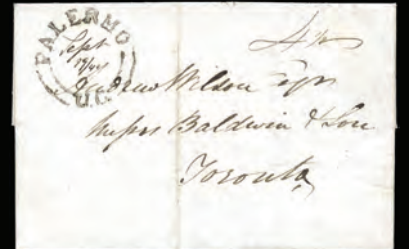 PALERMO
Sept
19/44
U.C.
4½
Andrew Wilson Esqr
Messrs Baldwin & Son
Toronto